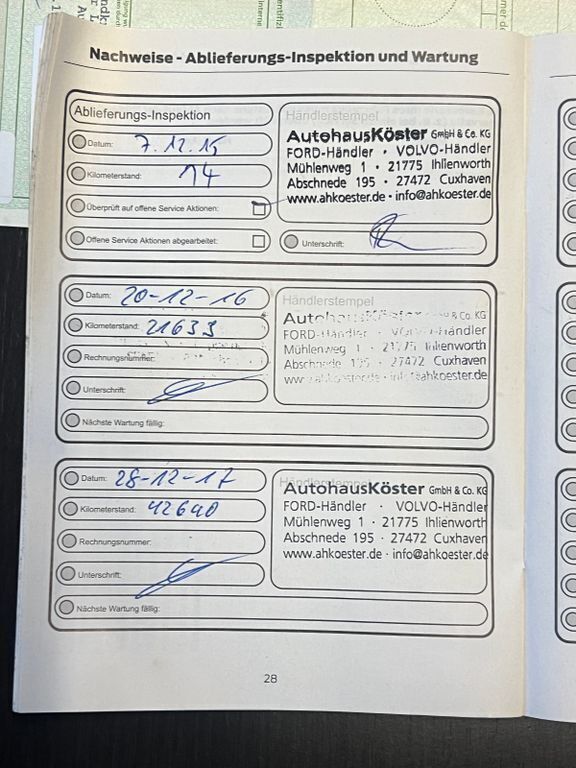 Nachweise - Ablieferungs-Inspektion und Wartung
Ablieferungs-Inspektion
Datum: 7.12.15
Kilometerstand: 14
Überprüft auf offene Service Aktionen:
Offene Service Aktionen abgearbeitet:
Händlerstempel
AutohausKöster GmbH & Co. KG
FORD-Händler · VOLVO-Händler
Mühlenweg 1 · 21775 Ihlienworth
Abschnede 195 · 27472 Cuxhaven
www.ahkoester.de · info@ahkoester.de
Unterschrift:
Datum: 20-12-16
Kilometerstand: 21633
Rechnungsnummer:
Unterschrift:
Nächste Wartung fällig:
Händlerstempel
AutohausKöster GmbH & Co. KG
FORD-Händler · VOLVO-Händler
Mühlenweg 1 · 21775 Ihlienworth
Abschnede 195 · 27472 Cuxhaven
www.ahkoester.de · info@ahkoester.de
Datum: 28-12-17
Kilometerstand: 42640
Rechnungsnummer:
Unterschrift:
Nächste Wartung fällig:
Händlerstempel
AutohausKöster GmbH & Co. KG
FORD-Händler · VOLVO-Händler
Mühlenweg 1 · 21775 Ihlienworth
Abschnede 195 · 27472 Cuxhaven
www.ahkoester.de · info@ahkoester.de
28